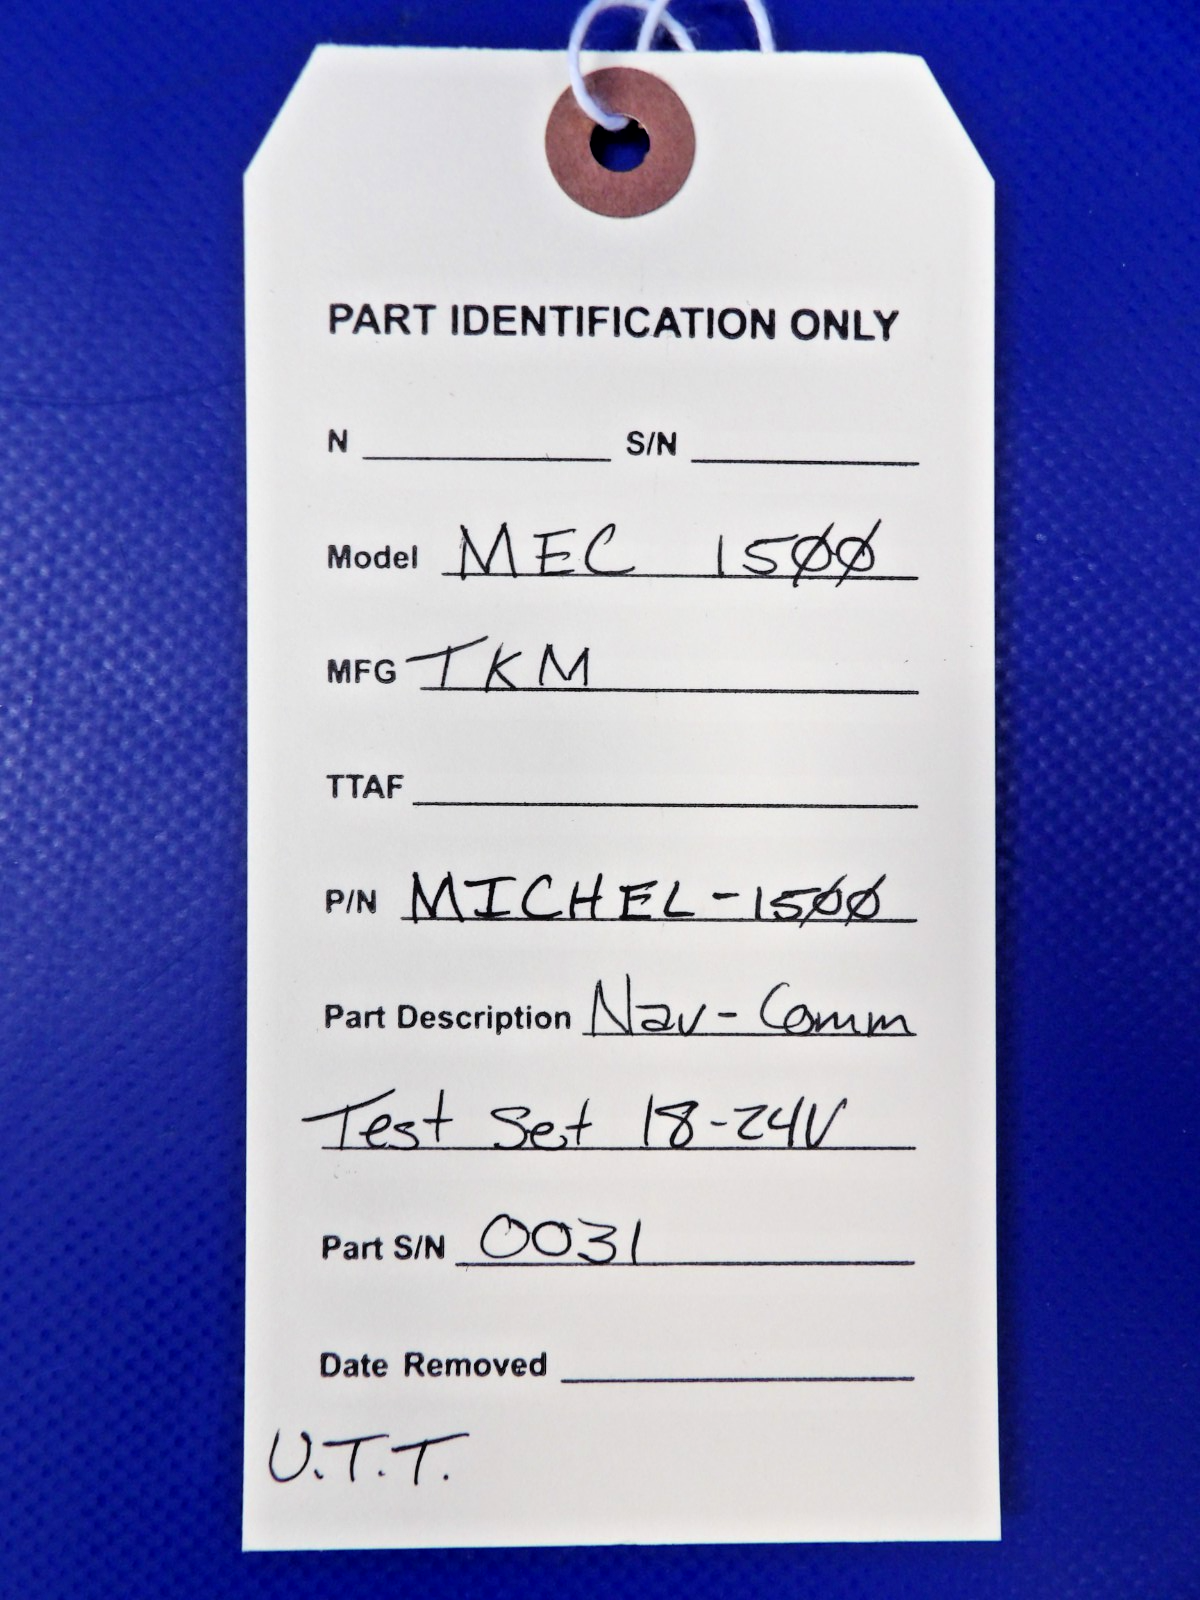 PART IDENTIFICATION ONLY
N S/N
Model MEC 15ØØ
MFG TKM
TTAF
P/N MICHEL-15ØØ
Part Description Nav-Comm
Test Set 18-24V
Part S/N 0031
Date Removed
U.T.T.